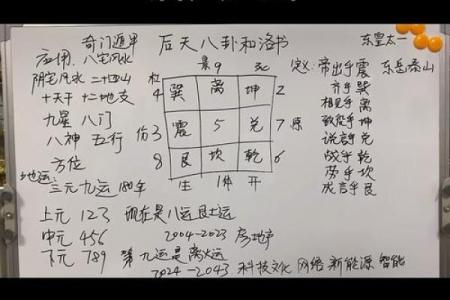 奇门遁甲 后天八卦和洛书 东皇太一
应用: 八宅风水
阴宅风水 二十四山
十天干 十二地支
九星 八门
八神 五行
方位
景9
杜4 巽 离 坤 2 死
伤3 震 5 兑 7
8 艮 坎 乾 6
生 休 开
定义: 帝出乎震 东岳泰山
齐乎巽
相见乎离
致役乎坤
说言乎兑
战乎乾
劳乎坎
成言乎艮
地运: 三元九运 180年
上元 123 现在是八运艮土运
中元 456 2004-2023 房地产
下元 789 第九运是离火运
2024-2043 科技文化 网络 新能源 智能